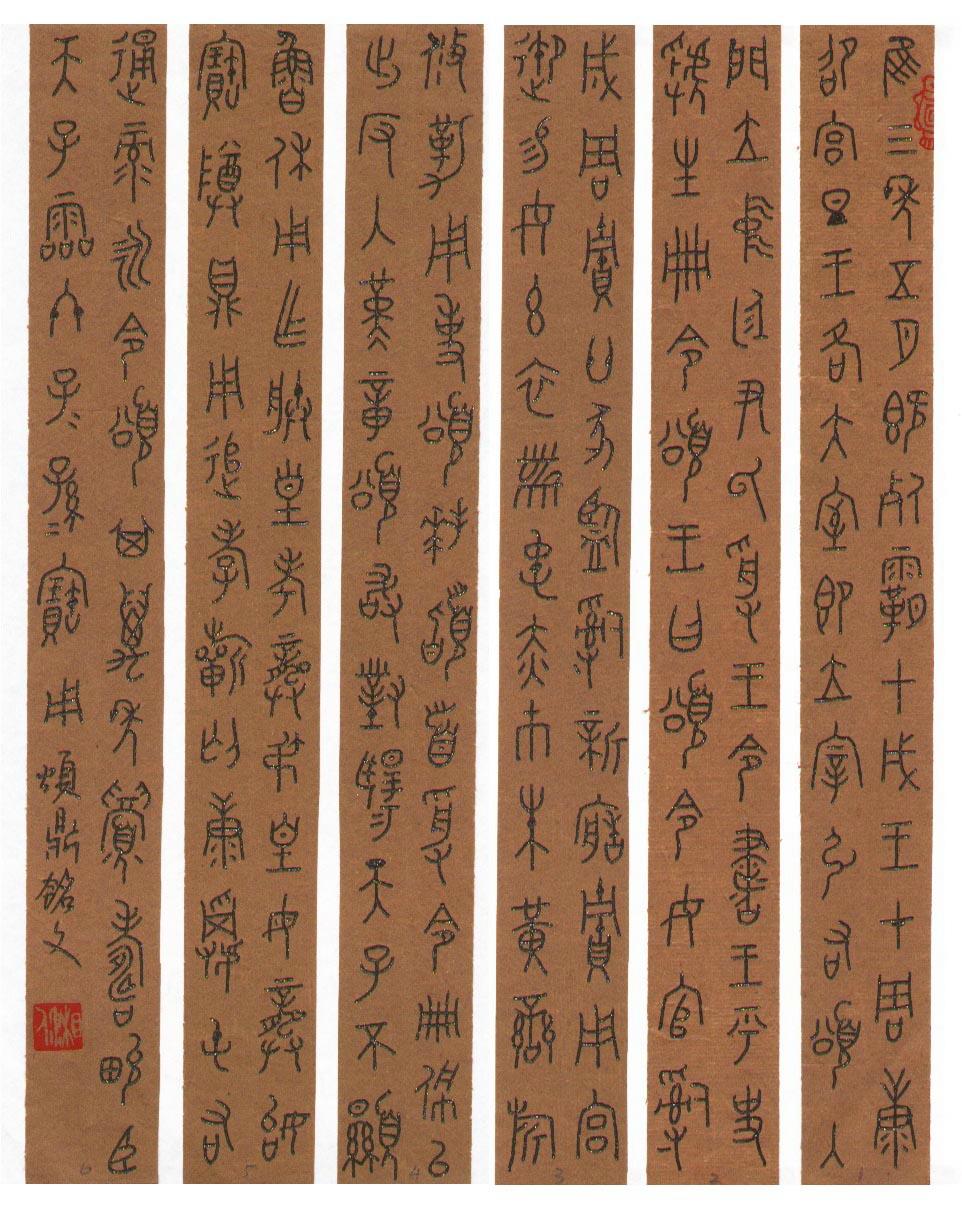 隹三年五月既死霸甲戌王才周康
卲宮旦王各大室即立宰引右頌入
1
門立中廷尹氏受王令書王乎史
虢生冊令頌王曰頌令女官𤔲
2
成周賈廿家監𤔲新造賈用宮
御易女玄衣黹屯赤巿朱黃䜌旂
3
攸勒用事頌拜𩒨首受令冊佩以
出反入堇章頌敢對揚天子不顯
4
魯休用乍朕皇考龔叔皇母龔姒
寶尊鼎用追孝祈匄康𩃬屯右
5
通彔永令頌其萬年眉壽畯臣
天子霝冬子=孫=寶用 頌鼎銘文
6